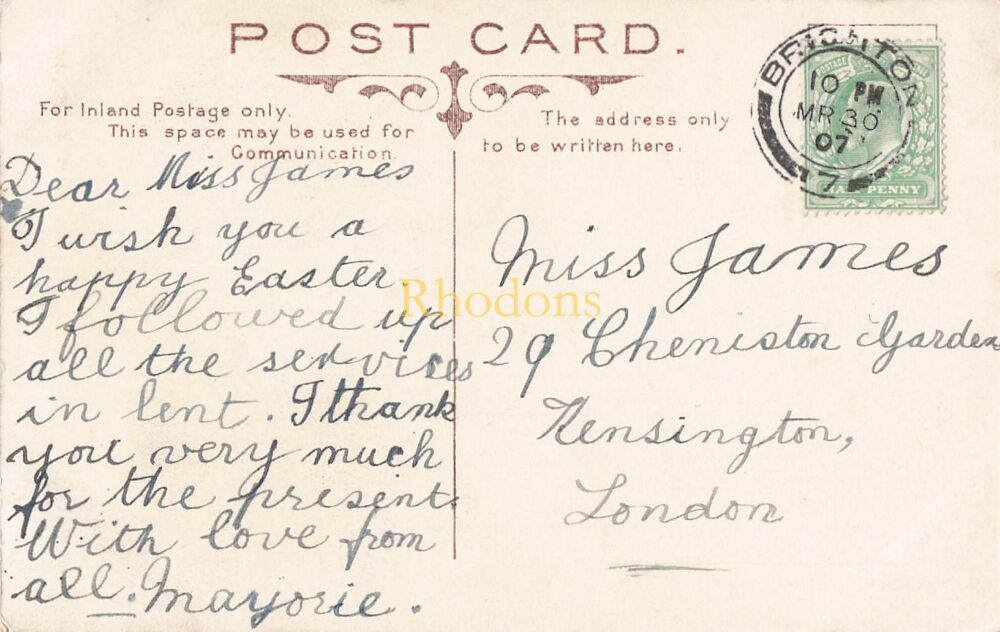 POST CARD.
For Inland Postage only.
This space may be used for
Communication.
The address only
to be written here.
BRIGHTON
10 PM
MR 30
07
7
HALFPENNY
Dear Miss James
I wish you a
happy Easter.
I followed up
all the services
in lent. I thank
you very much
for the present.
With love from
all. Marjorie.
Miss James
29 Cheniston Gardens
Kensington,
London
Rhodons